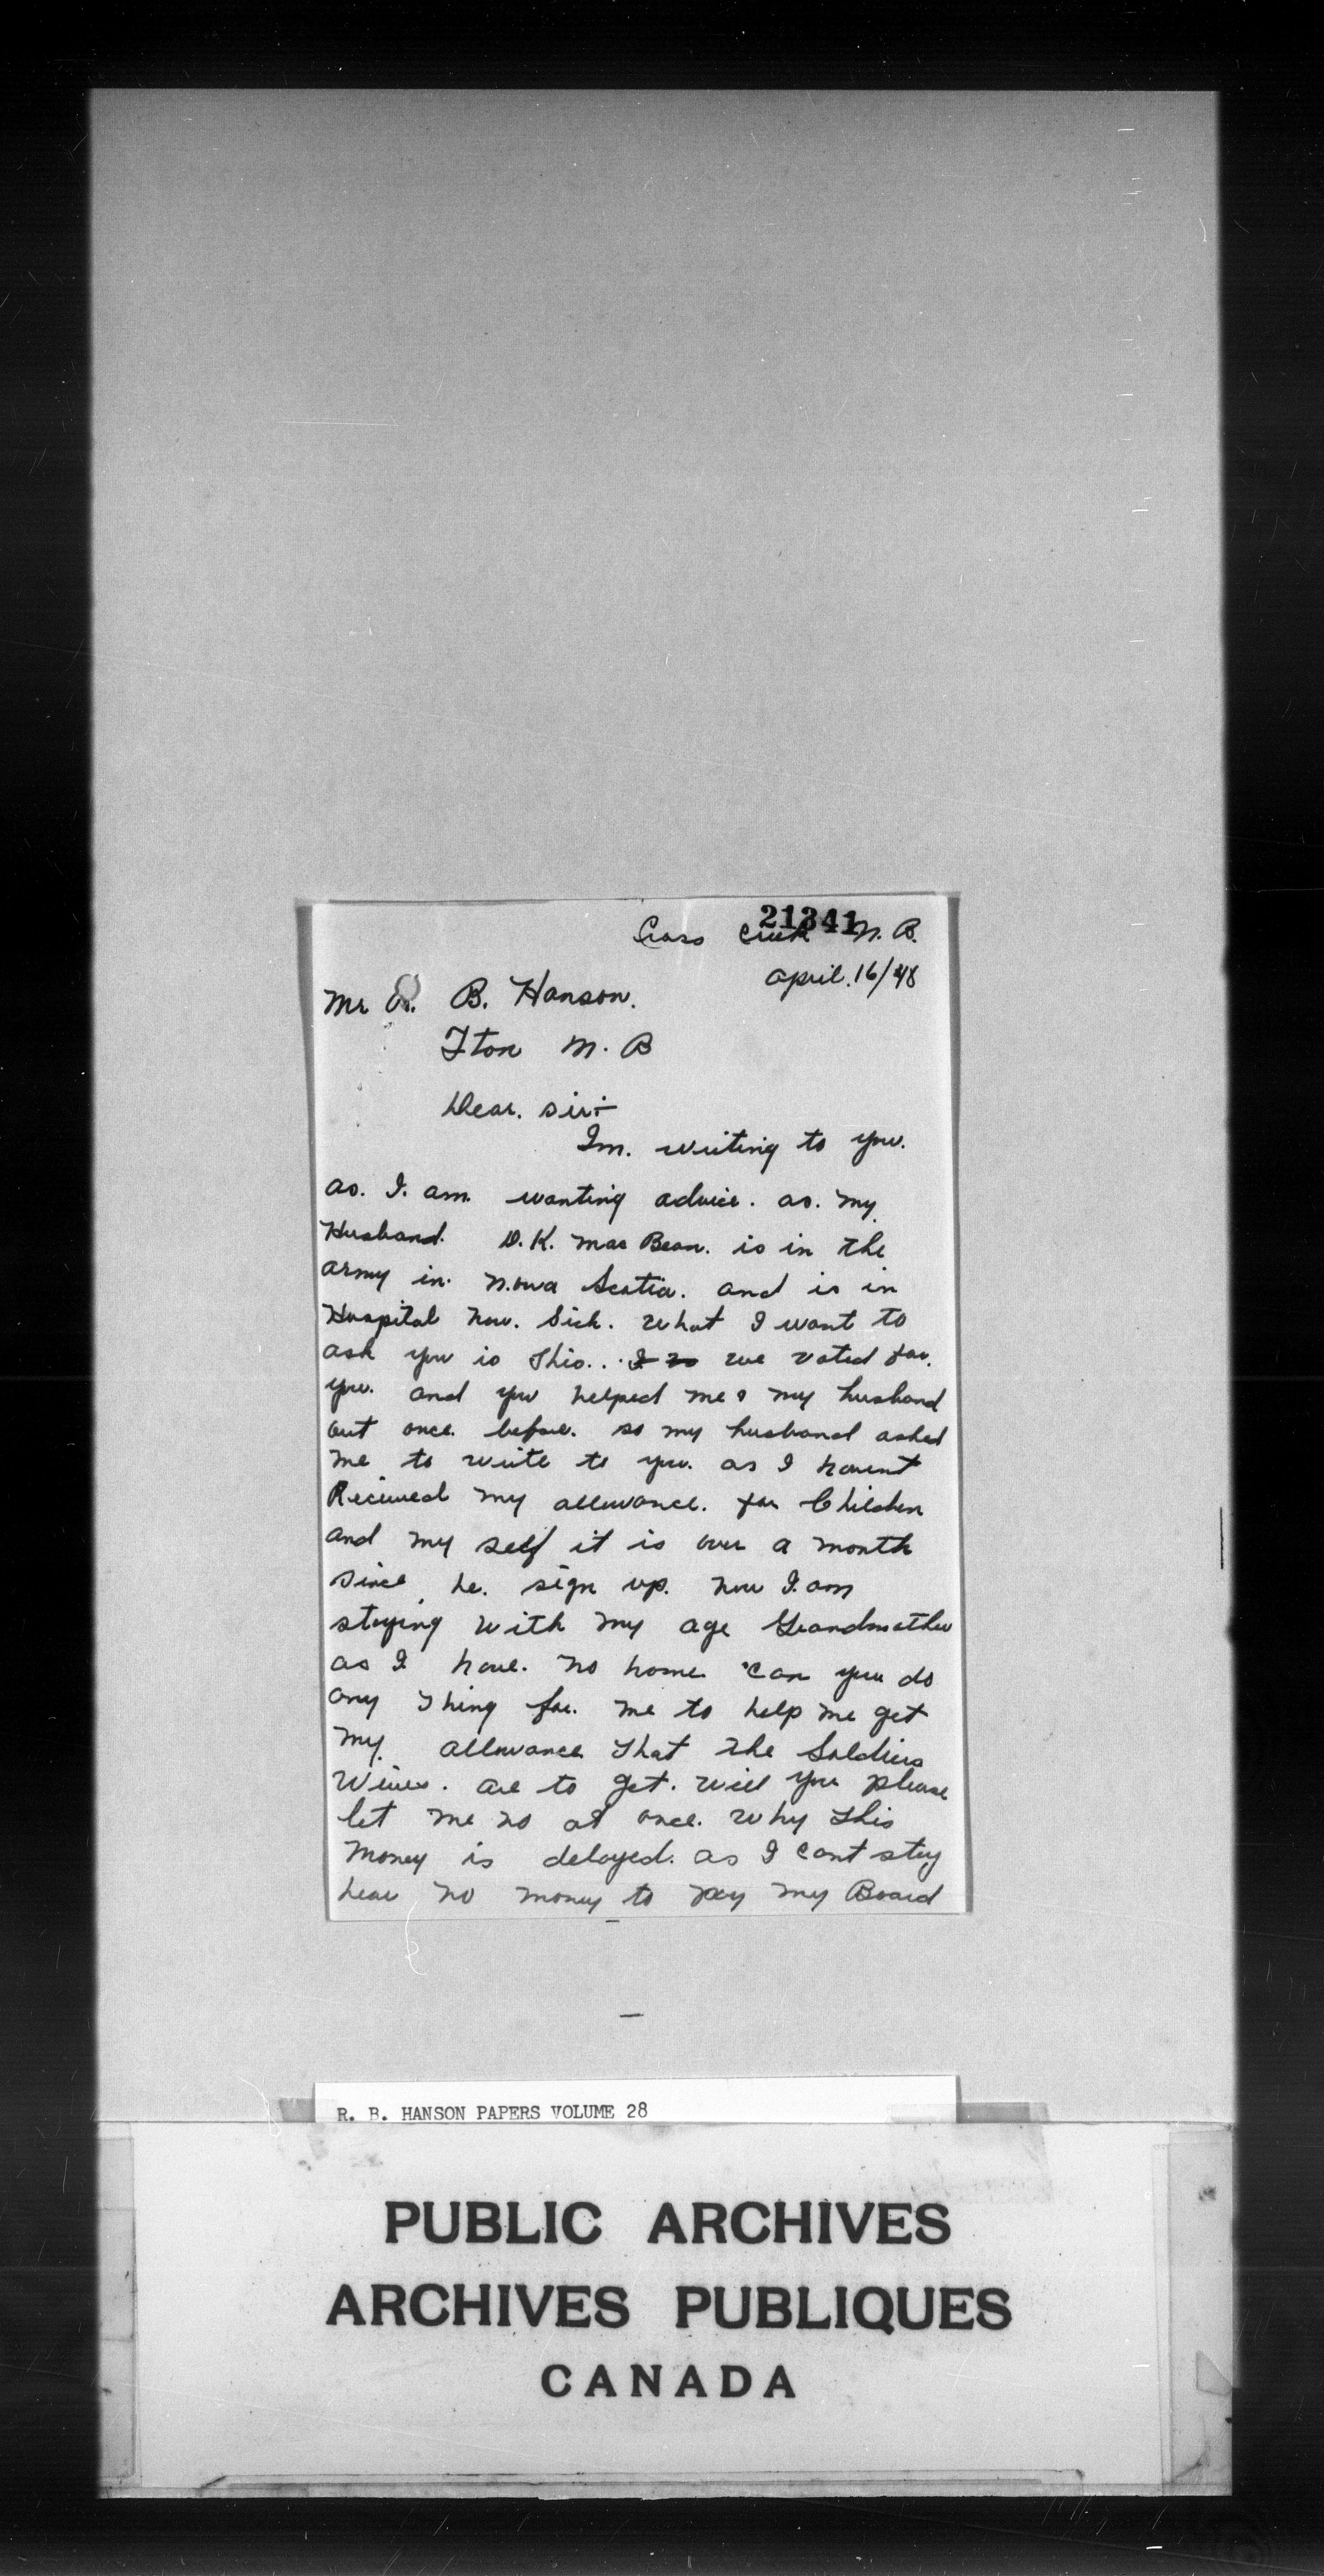 21341
Cross Creek N. B.
April. 16/48
Mr R. B. Hanson.
Fton N. B
Dear. Sir:-
Im. writing to you.
as. I. am. wanting advice. as. my.
Husband. D. K. Mac Bean. is in the
army in. Nova Scotia. and is in
Hospital now. Sick. What I want to
ask you is this... we voted for.
you. and you helped me & my husband
out once. before. so my husband asked
me to write to you. as I havent
Recieved my allowance. for Children
and my self it is over a month
since he. sign up. now I. am
staying with my age Grandmother
as I have. no home. can you do
any Thing for. me to help me get
my. allowance That the Soldiers
Wives. are to get. Will you please
let me no at once. Why this
money is delayed. as I cant stay
hear no money to pay my Board
R. B. HANSON PAPERS VOLUME 28
PUBLIC ARCHIVES
ARCHIVES PUBLIQUES
CANADA